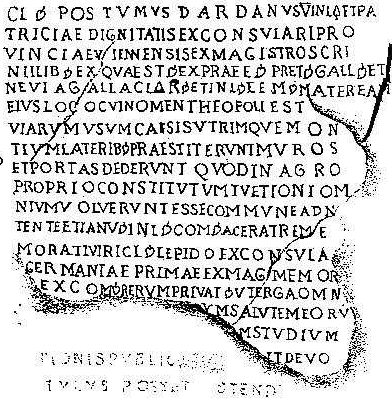 CL∂ POSTVMVS DARDANVS VINL∂ ET PA
TRICIAE DIGNITATIS EX CONSVLARI PRO
VINCIAE VIENNENSIS EX MAGISTRO SCRI
NII LIB∂ EX QVAEST∂ EX PRAEF∂ PRET∂ GALL∂ ET
NEVIA GALLA CLAR∂ ET INL∂ FEM∂ MATER FAM
EIVS LOCO CVI NOMEN THEOPOLI EST
VIARVM VSVM CAESIS VTRIMQVE MON
TIVM LATERIB∂ PRAESTITERVNT MVROS
ET PORTAS DEDERVNT QVOD IN AGRO
PROPRIO CONSTITVTVM TVETIONI OM
NIVM VOLVERVNT ESSE COMMVNE ADN
TENTE ETIAM V INL∂ COM∂ AC FRATRE ME
MORATI VIRI CL∂ LEPIDO EX CONSVLA
GERMANIAE PRIMAE EX MAG MEMOR
EX COM∂ RERVM PRIVAT∂ VT ERGA OMN
VM SALVTEM EORV
M STVDIVM
ET DEVO
TIONIS PVBLICAE
TVLVS POSSET OSTENDI